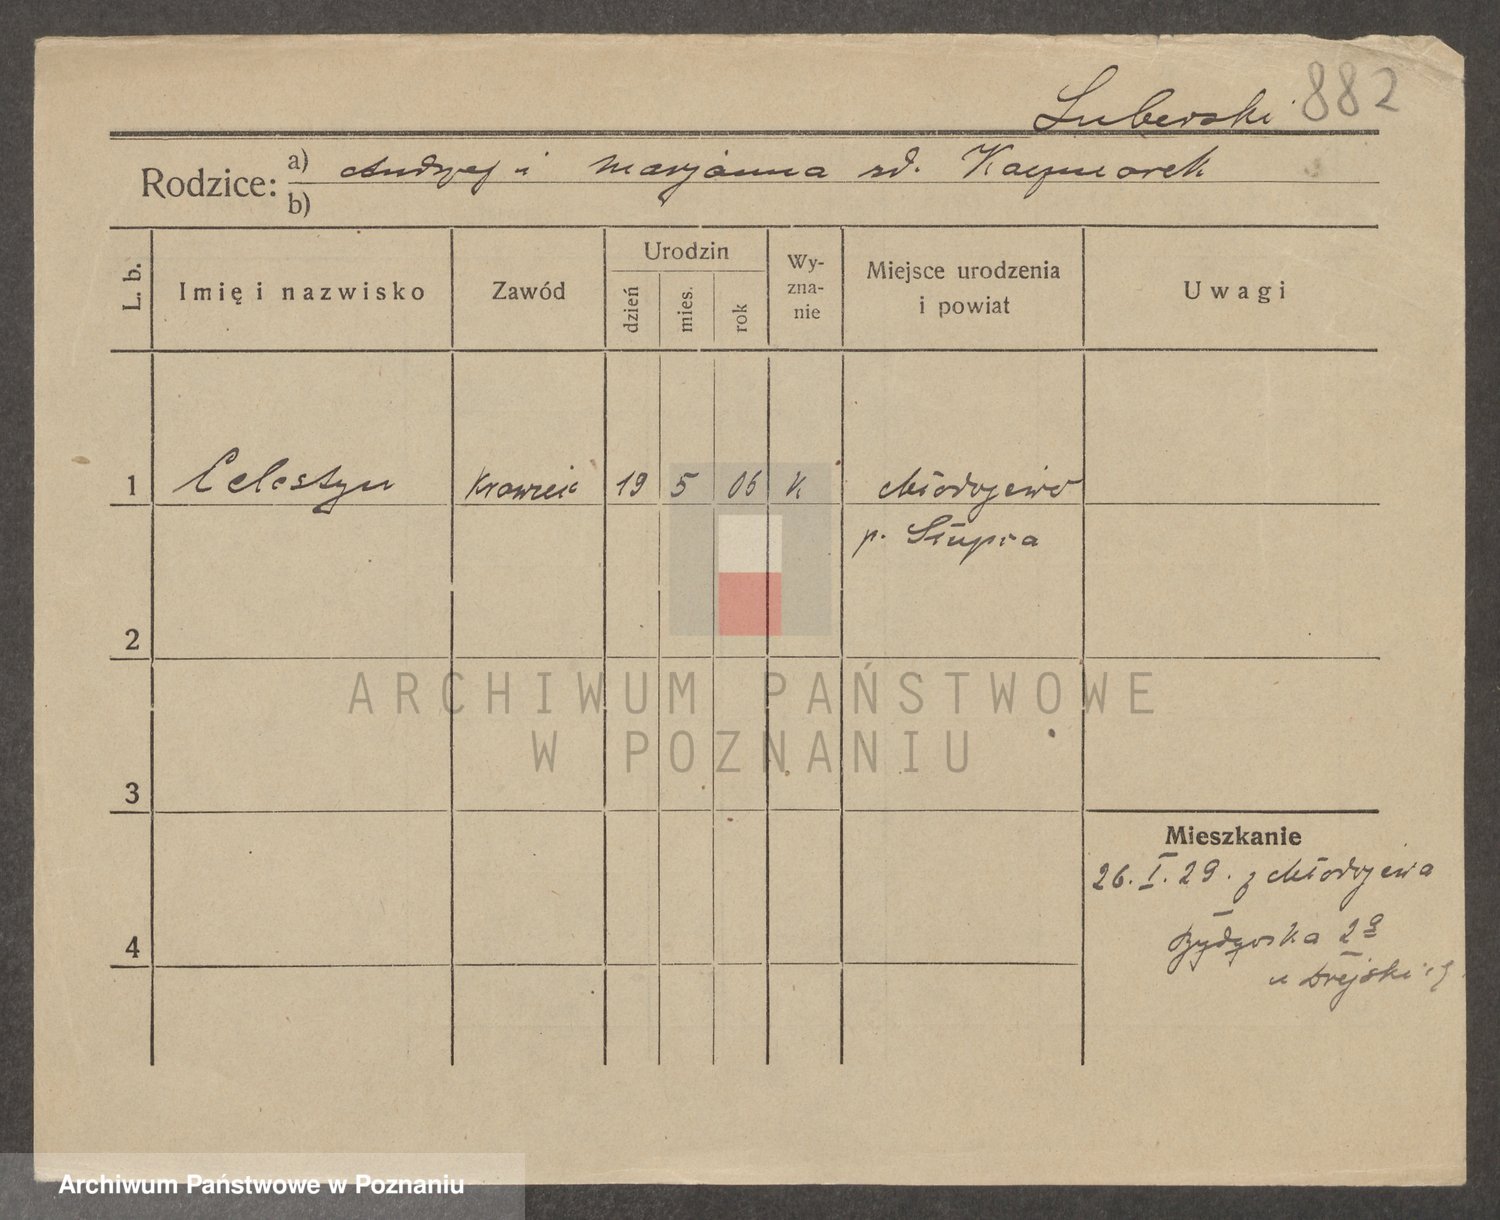 Luberski 882
Rodzice: a) Andrzej i Marjanna zd. Kaczmarek
b)
L. b.
Imię i nazwisko
Zawód
Urodzin
dzień
mies.
rok
Wy-
zna-
nie
Miejsce urodzenia
i powiat
Uwagi
1 Celestyn Krawiec 19 5 06 k. Młodojewo
p. Słupca
2
3
4
Mieszkanie
26. I. 29. z Młodojewa
Bydgoska 2a
u
ARCHIWUM PAŃSTWOWE
W POZNANIU
Archiwum Państwowe w Poznaniu